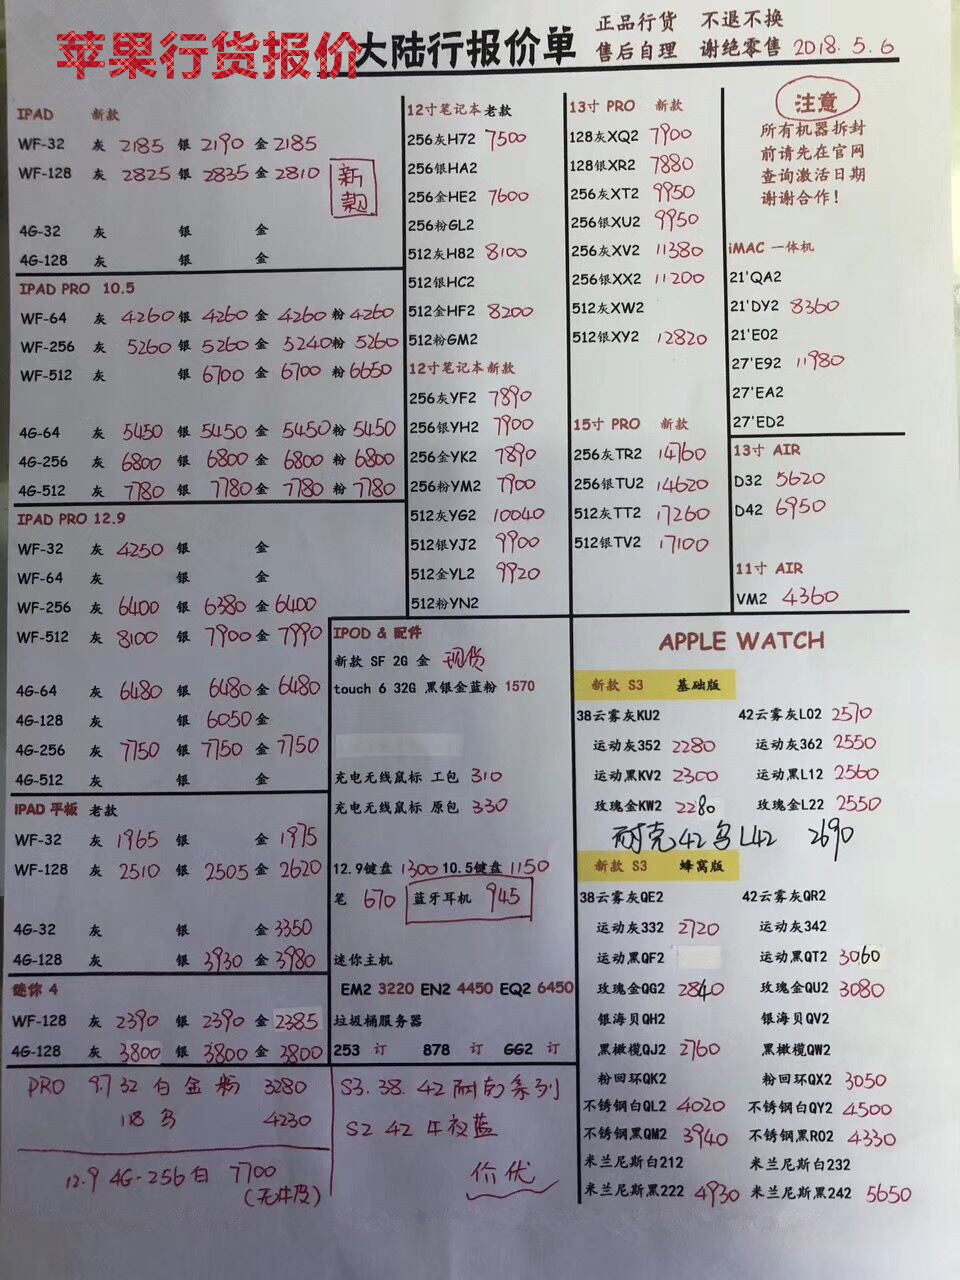 苹果行货报价
大陆行报价单
正品行货 不退不换
售后自理 谢绝零售 2018.5.6
IPAD 新款
WF-32 灰 2185 银 2190 金 2185
WF-128 灰 2825 银 2835 金 2810
新款
4G-32 灰 银 金
4G-128 灰 银 金
IPAD PRO 10.5
WF-64 灰 4260 银 4260 金 4260 粉 4260
WF-256 灰 5260 银 5260 金 5240 粉 5260
WF-512 灰 银 6700 金 6700 粉 6650
4G-64 灰 5450 银 5450 金 5450 粉 5450
4G-256 灰 6800 银 6800 金 6800 粉 6800
4G-512 灰 7780 银 7780 金 7780 粉 7780
IPAD PRO 12.9
WF-32 灰 4250 银 金
WF-64 灰 银 金
WF-256 灰 6400 银 6380 金 6400
WF-512 灰 8100 银 7900 金 7990
4G-64 灰 6480 银 6480 金 6480
4G-128 灰 银 6050 金
4G-256 灰 7750 银 7750 金 7750
4G-512 灰 银 金
IPAD 平板 老款
WF-32 灰 1965 金 1975
WF-128 灰 2510 银 2505 金 2620
4G-32 灰 银 金 3350
4G-128 灰 银 3930 金 3980
迷你 4
WF-128 灰 2390 银 2390 金 2385
4G-128 灰 3800 银 3800 金 3800
PRO 9.7 32 白 金 粉 3280
4230
12.9 4G-256 白 7700
12寸笔记本老款
256灰H72 7500
256银HA2
256金HE2 7600
256粉GL2
512灰H82 8100
512银HC2
512金HF2 8200
512粉GM2
12寸笔记本新款
256灰YF2 7890
256银YH2 7900
256金YK2 7890
256粉YM2 7900
512灰YG2 10040
512银YJ2 9900
512金YL2 9920
512粉YN2
13寸 PRO 新款
128灰XQ2 7900
128银XR2 7880
256灰XT2 9950
256银XU2 9950
256灰XV2 11380
256银XX2 11200
512灰XW2
512银XY2 12820
15寸 PRO 新款
256灰TR2 14760
256银TU2 14620
512灰TT2 17260
512银TV2 17100
注意
所有机器拆封
前请先在官网
查询激活日期
谢谢合作!
iMAC 一体机
21'QA2
21'DY2 8360
21'E02
27'E92 11980
27'EA2
27'ED2
13寸 AIR
D32 5620
D42 6950
11寸 AIR
VM2 4360
IPOD & 配件
新款 SF 2G 金 现货
touch 6 32G 黑银金蓝粉 1570
充电无线鼠标 工包 310
充电无线鼠标 原包 330
12.9键盘 1300 10.5键盘 1150
笔 670 蓝牙耳机 945
迷你主机
EM2 3220 EN2 4450 EQ2 6450
垃圾桶服务器
253 订 878 订 GG2 订
S3.38.42 耐克系列
S2 42 午夜蓝
价优
APPLE WATCH
新款 S3 基础版
38云雾灰KU2 42云雾灰L02 2570
运动灰352 2280 运动灰362 2550
运动黑KV2 2300 运动黑L12 2560
玫瑰金KW2 2280 玫瑰金L22 2550
耐克42乌L42 2690
新款 S3 蜂窝版
38云雾灰QE2 42云雾灰QR2
运动灰332 2720 运动灰342
运动黑QF2 运动黑QT2 3060
玫瑰金QG2 2840 玫瑰金QU2 3080
银海贝QH2 银海贝QV2
黑橄榄QJ2 2760 黑橄榄QW2
粉回环QK2 粉回环QX2 3050
不锈钢白QL2 4020 不锈钢白QY2 4500
不锈钢黑QM2 3940 不锈钢黑R02 4330
米兰尼斯白212 米兰尼斯白232
米兰尼斯黑222 4930 米兰尼斯黑242 5650